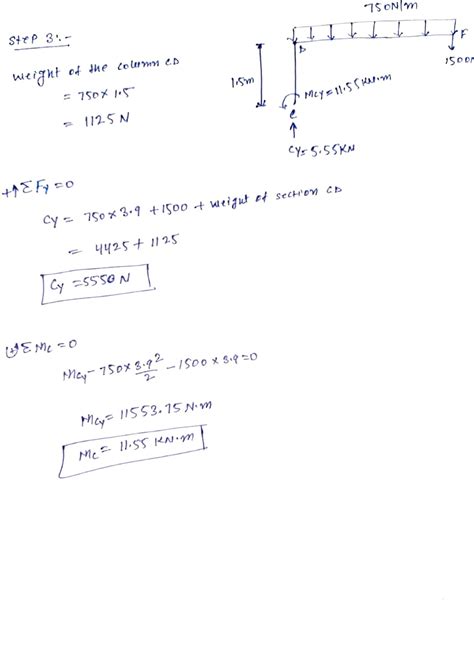 Step 3:-
750N/m
weight of the column CD
= 750 × 1.5
= 1125 N
D
F
1500N
1.5m
Mcy=11.55KN.m
C
Cy=5.55KN
+↑ΣFy=0
Cy = 750×3.9 +1500 + weight of section CD
= 4425 + 1125
Cy =5550 N
ΣMc=0
Mcy-750×3.9²/2 -1500×3.9=0
Mcy= 11553.75 N.m
Mc= 11.55 KN.m